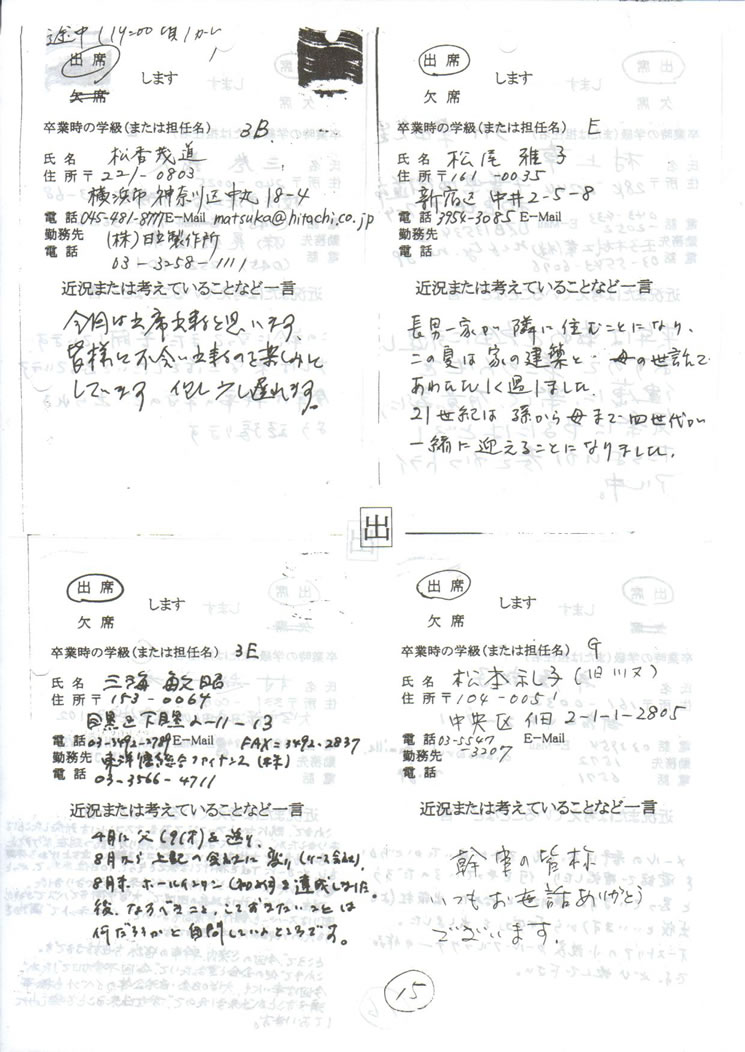 途中(14:00頃)から
出席
します
欠席
卒業時の学級(または担任名) 3B
氏名 松香茂道
住所〒221-0803
横浜市神奈川区中丸18-4
電話045-481-8777 E-Mail matsuka@hitachi.co.jp
勤務先 (株)日立製作所
電話 03-3258-1111
近況または考えていることなど一言
今回は出席出来ると思います。
皆様とお会い出来るので楽しみに
しています。但し少し遅れます。
出席
します
欠席
卒業時の学級(または担任名) E
氏名 松尾雅子
住所〒161-0035
新宿区中井2-5-8
電話3954-3085 E-Mail
勤務先
電話
近況または考えていることなど一言
長男一家が隣に住むことになり、
この夏は家の建築と、母の世話で
あわただしく過しました。
21世紀は孫から母まで四世代が
一緒に迎えることになりました。
出
出席
します
欠席
卒業時の学級(または担任名) 3E
氏名 三海敏昭
住所〒153-0064
目黒区下目黒2-11-13
電話03-3492-2789 E-Mail FAX=3492-2837
勤務先 ファイナンス(株)
電話 03-3566-4711
近況または考えていることなど一言
4月に父(91才)を送り、
8月から上記の会社に変り(リース会社)、
8月末ホールインワン(初めて)を達成しました。
後、なすべきこと、しておきたいことは
何だろうかと自問しているところです。
出席
します
欠席
卒業時の学級(または担任名) G
氏名 松本礼子(旧川又)
住所〒104-0051
中央区佃2-1-1-2805
電話03-5547-3207 E-Mail
勤務先
電話
近況または考えていることなど一言
幹事の皆様
いつもお世話ありがとう
ございます。
15